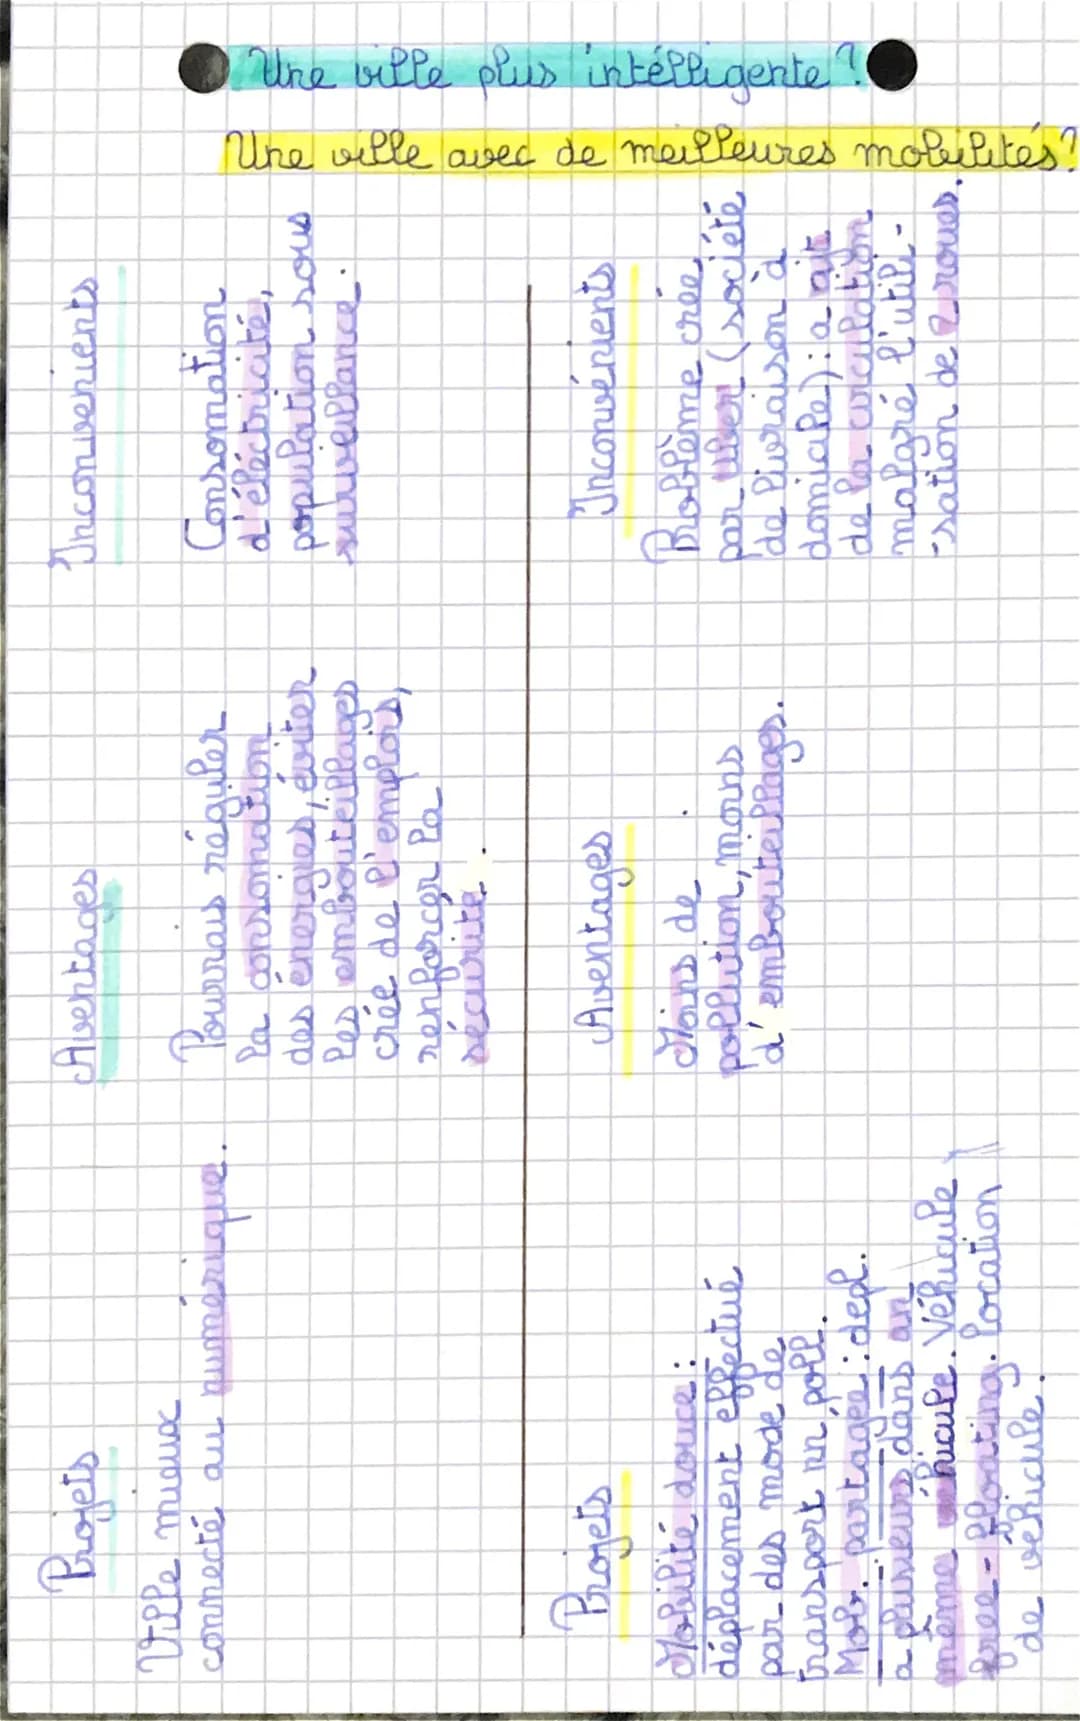 Une ville plus intélligente ?
Une ville avec de meilleures mobilités ?
Projets
Ville mieux
connecté au numérique.
Aventages
Pourrais réguler
la consomation
des énergies, éviter
les embouteillages
crée de l'emplois,
renforcer la
sécurité.
Inconvenients
Consomation
d'éléctricité,
population sous
surveillance.
Projets
Mobilité douce :
déplacement effectué
par des mode de
transport nn poll.
Mobi. partagée : depl.
a plusieurs dans un
même véhicule. Véhicule
free-floating. location
de véhicule.
Aventages
Moins de
pollution, moins
d'embouteillages.
Inconvénients
Problème crée
par Uber (société
de livraison à
domicile) : a
de la circulation
malgré l'utili-
-sation de 2 roues.